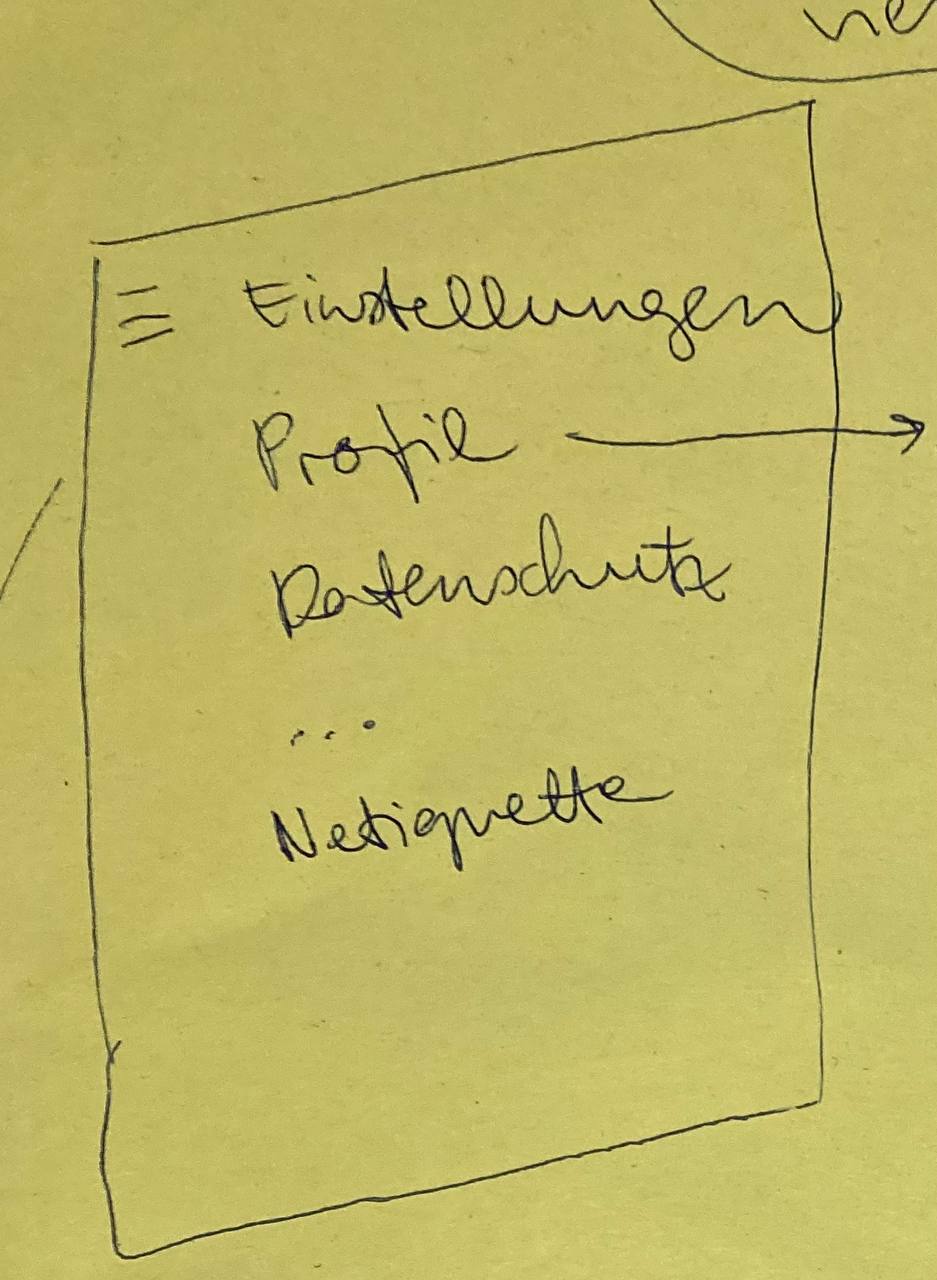 Einstellungen
Profil
Datenschutz
...
Netiquette